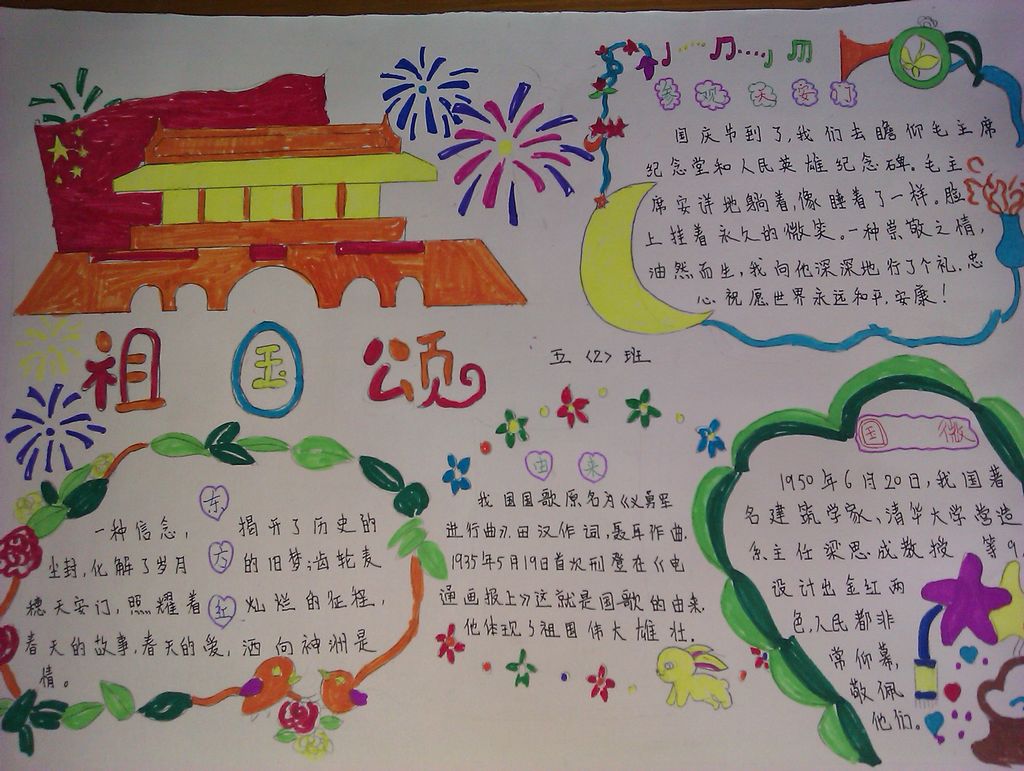 参观天安门
国庆节到了,我们去瞻仰毛主席
纪念堂和人民英雄纪念碑。毛主
席安详地躺着,像睡着了一样。脸
上挂着永久的微笑。一种崇敬之情,
油然而生,我向他深深地行了个礼.忠
心祝愿世界永远和平,安康!
祖国颂
五〈2〉班
东方红
一种信念,揭开了历史的
尘封,化解了岁月的旧梦;齿轮麦
穗天安门,照耀着灿烂的征程,
春天的故事,春天的爱,洒向神洲是
情。
由来
我国国歌原名为《义勇军
进行曲》.田汉作词,聂耳作曲.
1935年5月19日首次刑登在《电
通画报上》这就是国歌的由来.
他体现了祖国伟大雄壮.
国徽
1950年6月20日,我国著
名建筑学家、清华大学营造
系主任梁思成教授等9
设计出金红两
色,人民都非
常仰慕,
敬佩
他们。